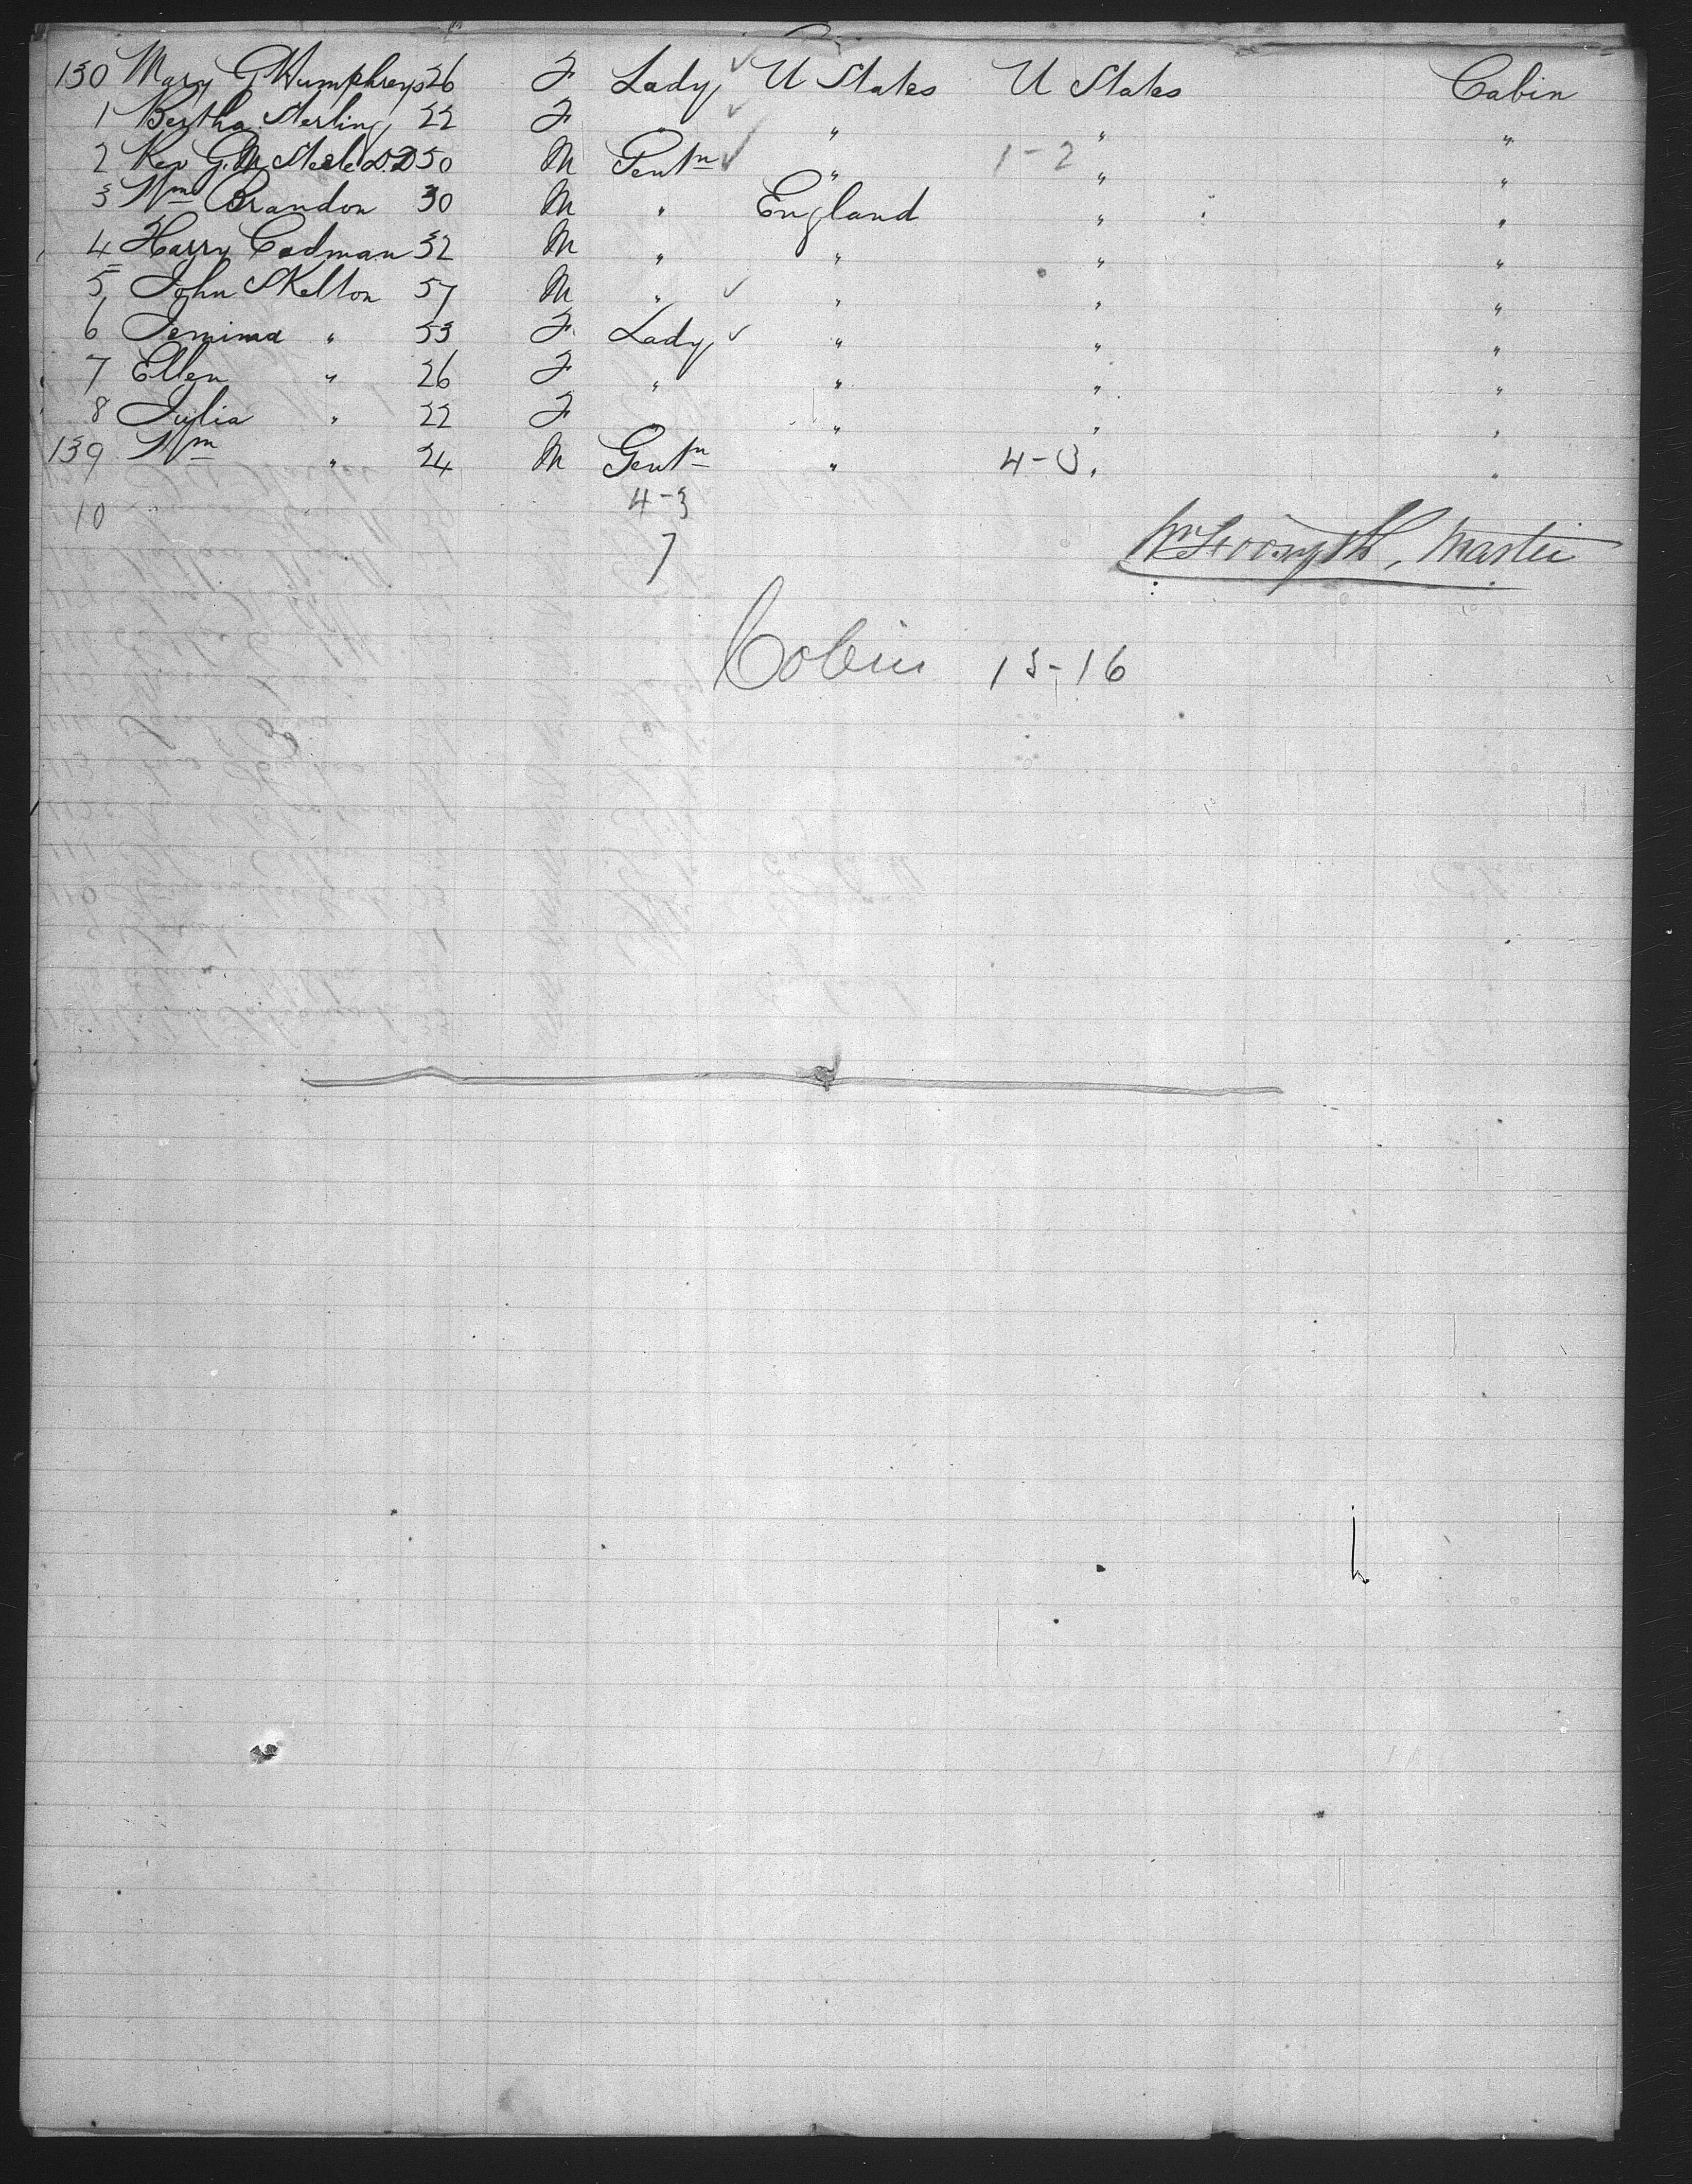 130 Mary G Humphreys 26 F Lady U States U States Cabin
1 Bertha Sterling 22 F " " " "
2 Rev G. M Steele D.D 50 M Gentn " 1-2 " "
3 Wm Brandon 30 M " England " "
4 Harry Cadman 32 M " " " "
5 John Skelton 57 M " " " "
6 Jemima " 53 F Lady " " "
7 Ellen " 26 F " " " "
8 Julia " 22 F " " " "
139 Wm " 24 M Gentn " 4-3 " "
10 4-3
7
Wm Forsyth, Master
Cabin 13-16